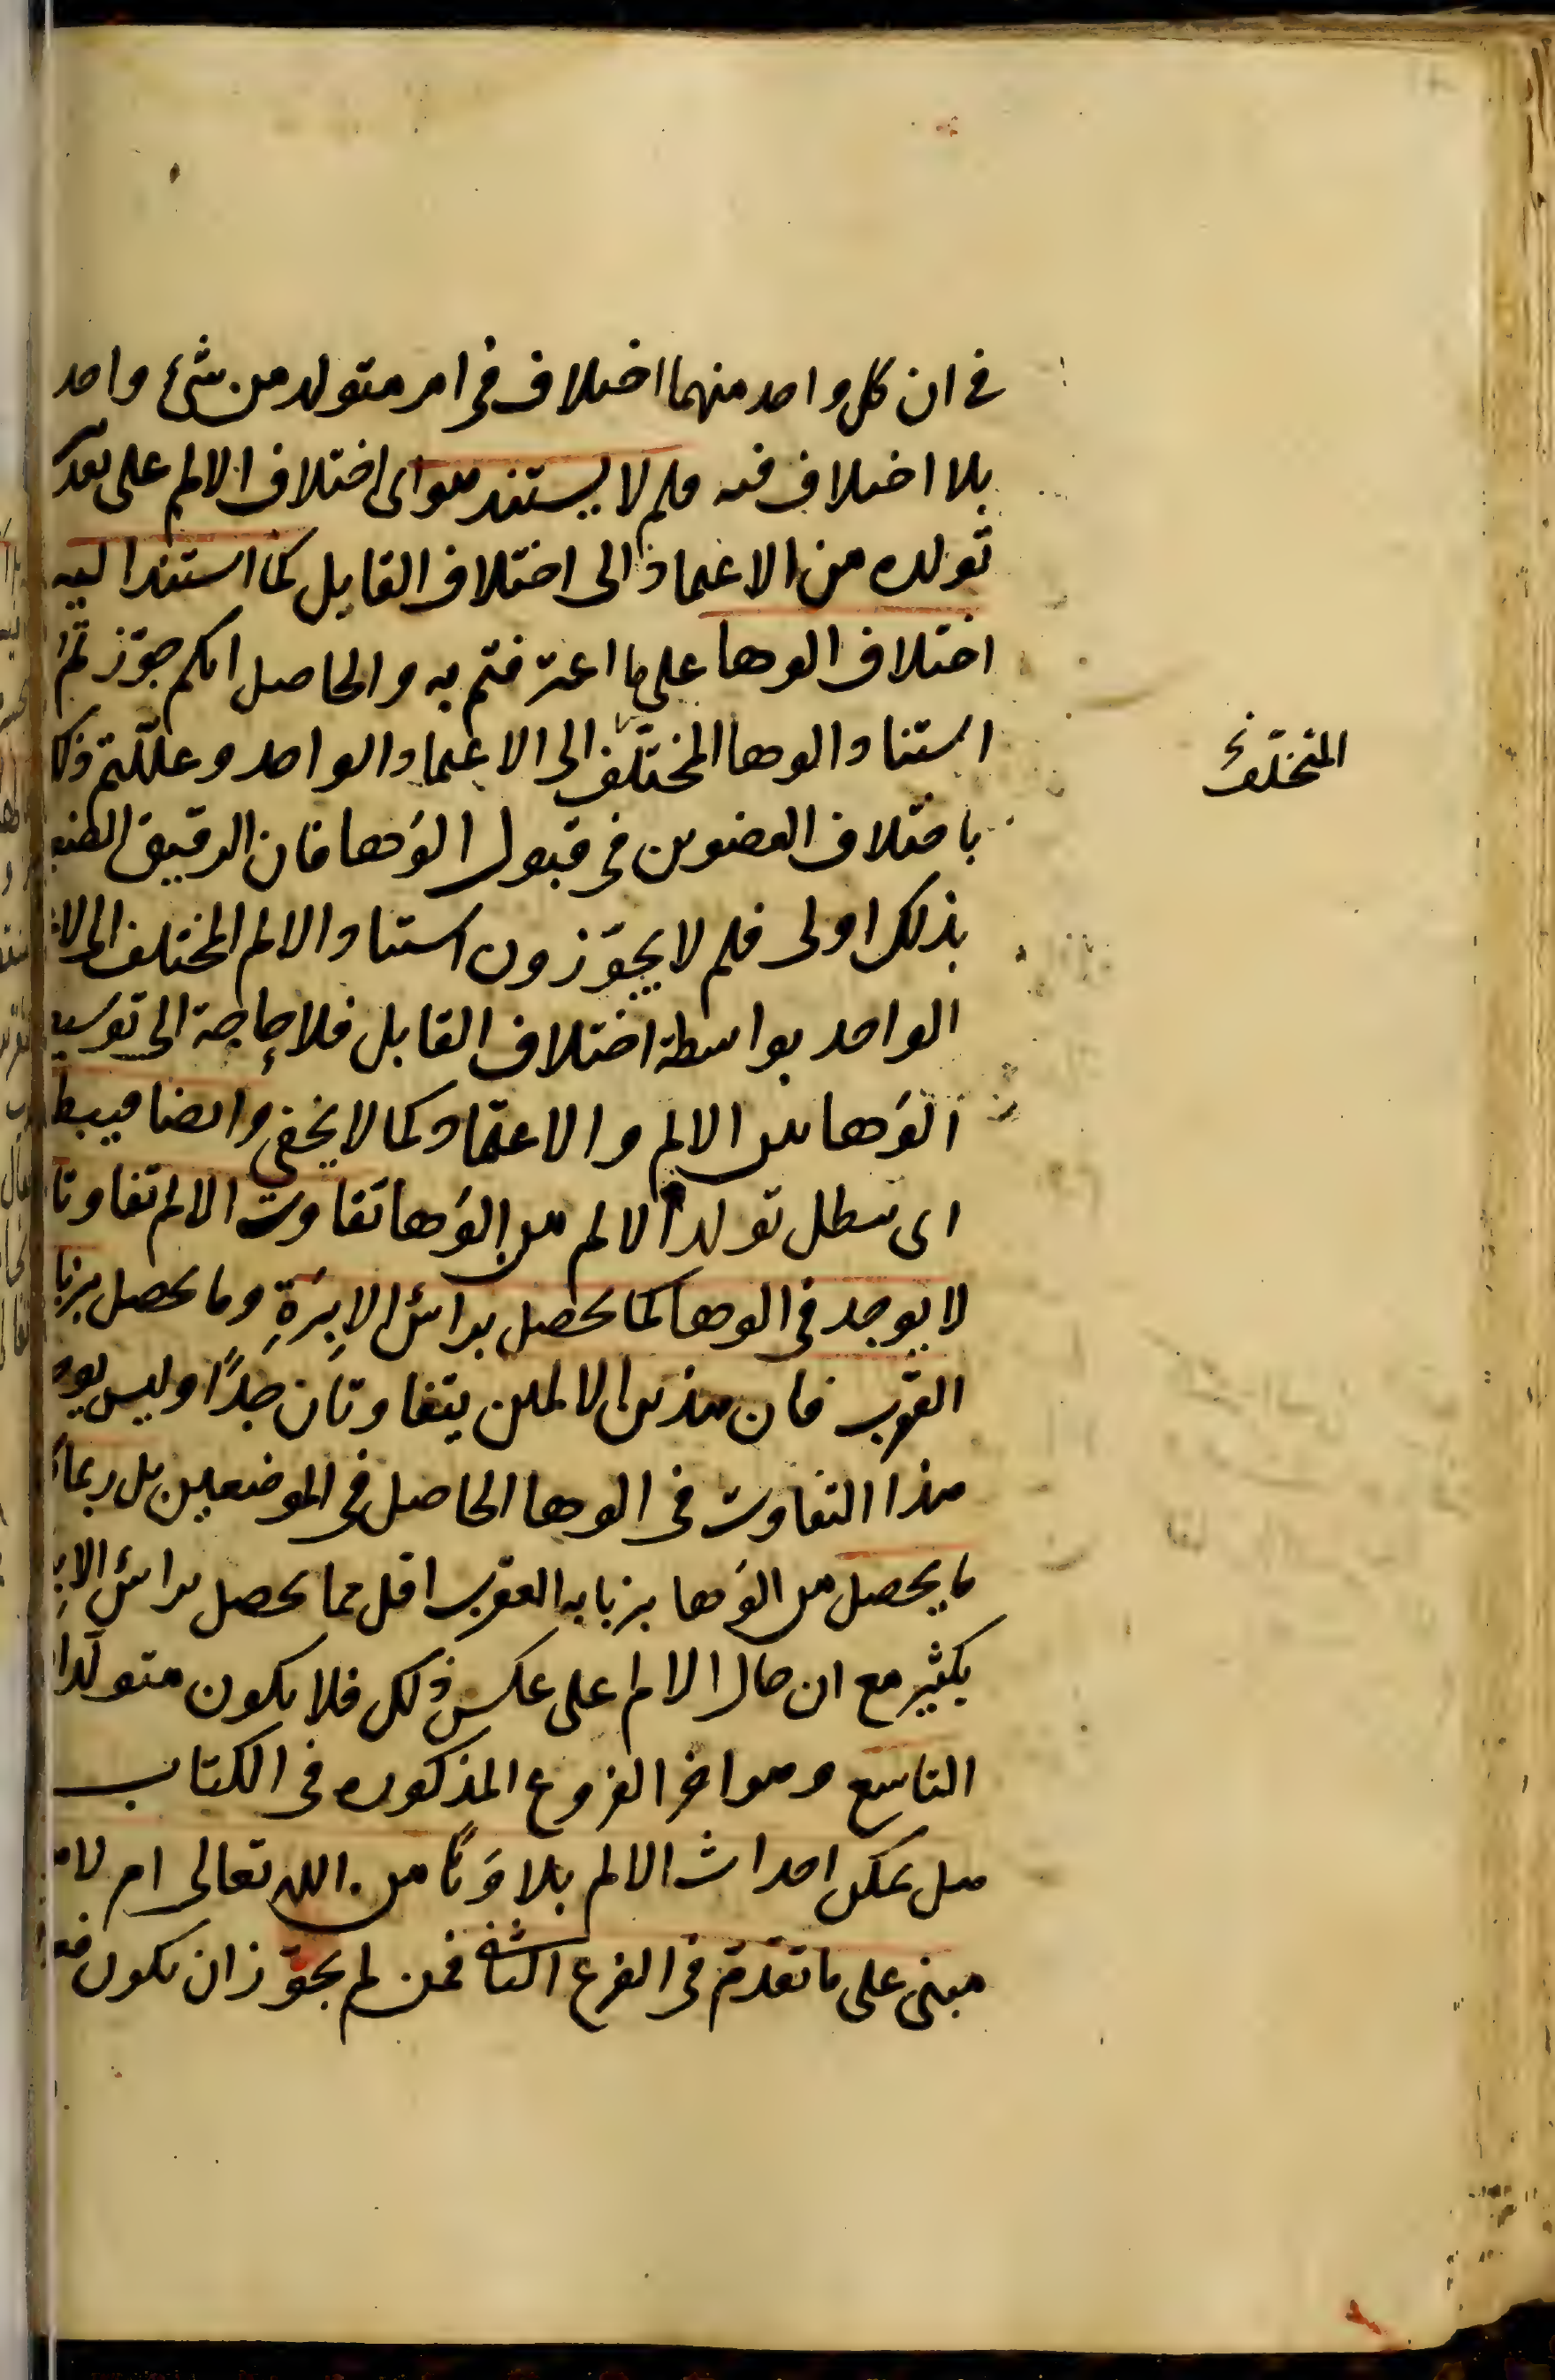 في ان كل واحد منهما اختلاف في امر متولد من شئ واحد
بلا اختلاف فيه فلم لا يستند هو اى اختلاف الالم على تقدير
تولده من الاعتماد الى اختلاف القابل كما استند اليه
اختلاف الوها على ما اعترفتم به والحاصل انكم جوّزتم
استناد الوها المختلف الى الاعتماد الواحد وعلّلتم ذلك
باختلاف العضوين في قبول الوَها فان الرقيق
بذلك اولى فلم لا يجوّزون استناد الالم المختلف الى
الواحد بواسطة اختلاف القابل فلا حاجة الى
الوَها بين الالم والاعتماد كما لا يخفى وايضا فيبطله
اى يبطل تولد الالم من الوَها تفاوت الالم تفاوتا
لا يوجد في الوها كما يحصل براس الاِبرَةِ وما يحصل
العقرب فان هذين الالمين يتفاوتان جدًا وليس يوجد
هذا التفاوت في الوها الحاصل في الموضعين بل ربما
ما يحصل من الوَها بزبانه العقرب اقل مما يحصل براس
بكثير مع ان حال الالم على عكس ذلك فلا يكون متولدا
التاسع وهو اخر الفروع المذكوره في الكتاب
هل يمكن احداث الالم بلا وَهًا من الله تعالى ام لا
مبنى على ما تقدّم في الفرع الثانى فمن لم يجوّز ان يكون
المختلف